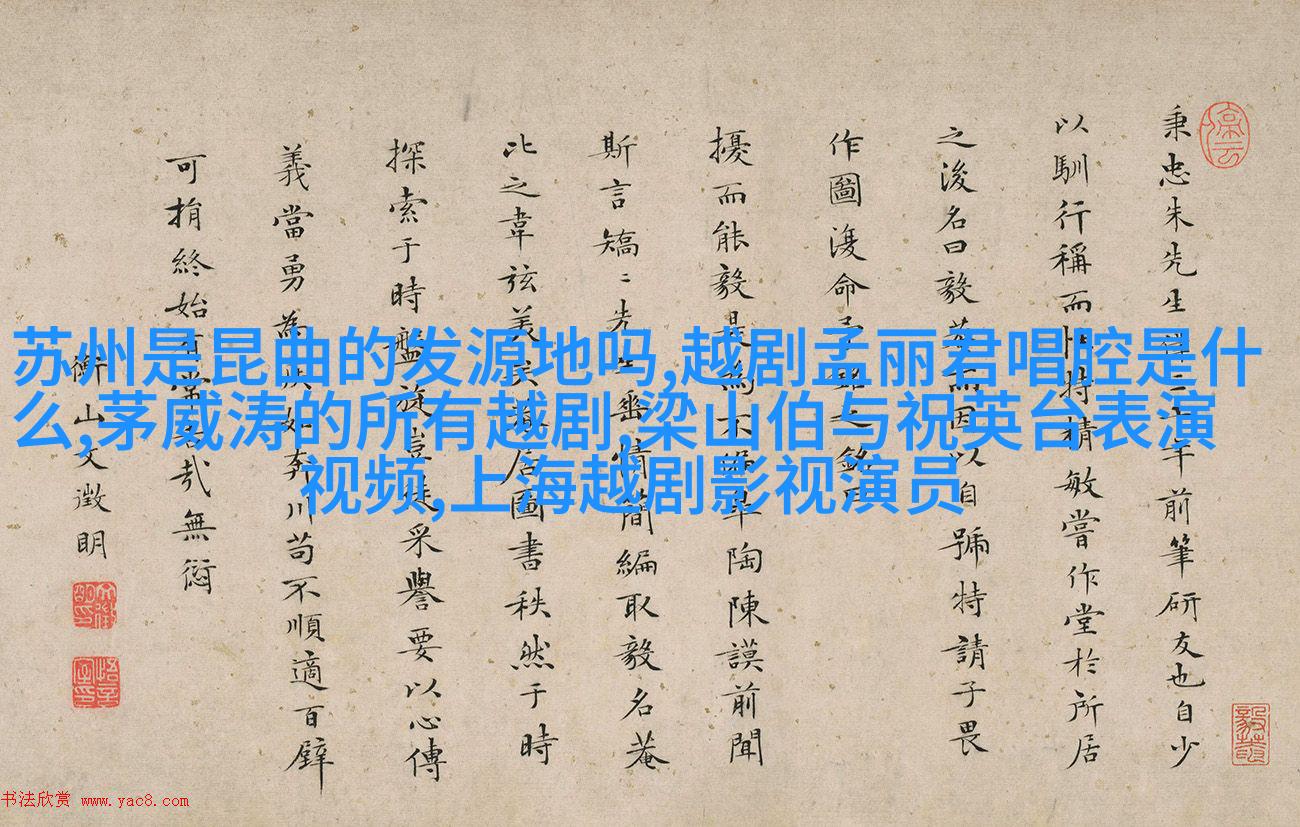 苏州是昆曲的发源地吗,越剧孟丽君唱腔是什
么,茅威涛的所有越剧,梁山伯与祝英台表演
视频,上海越剧影视演员
秉忠朱先生年前筆研友也自少
以馴行稱而性特精敏嘗作堂於所居
之後名曰毅菴而因以自號特請子畏
作圖復命予銘曰
擾而能毅是為不皋陶陳謨前聞
斯言矯〻先生情簡編取毅名菴
比之韋弦美居圖書秩然于時
探索于時盤旋豈徒采譽要以心傳
義當勇為決如奔川苟不順適百
可捐終始哉無愆
衡山文徵明
书法欣赏 www.yac8.com